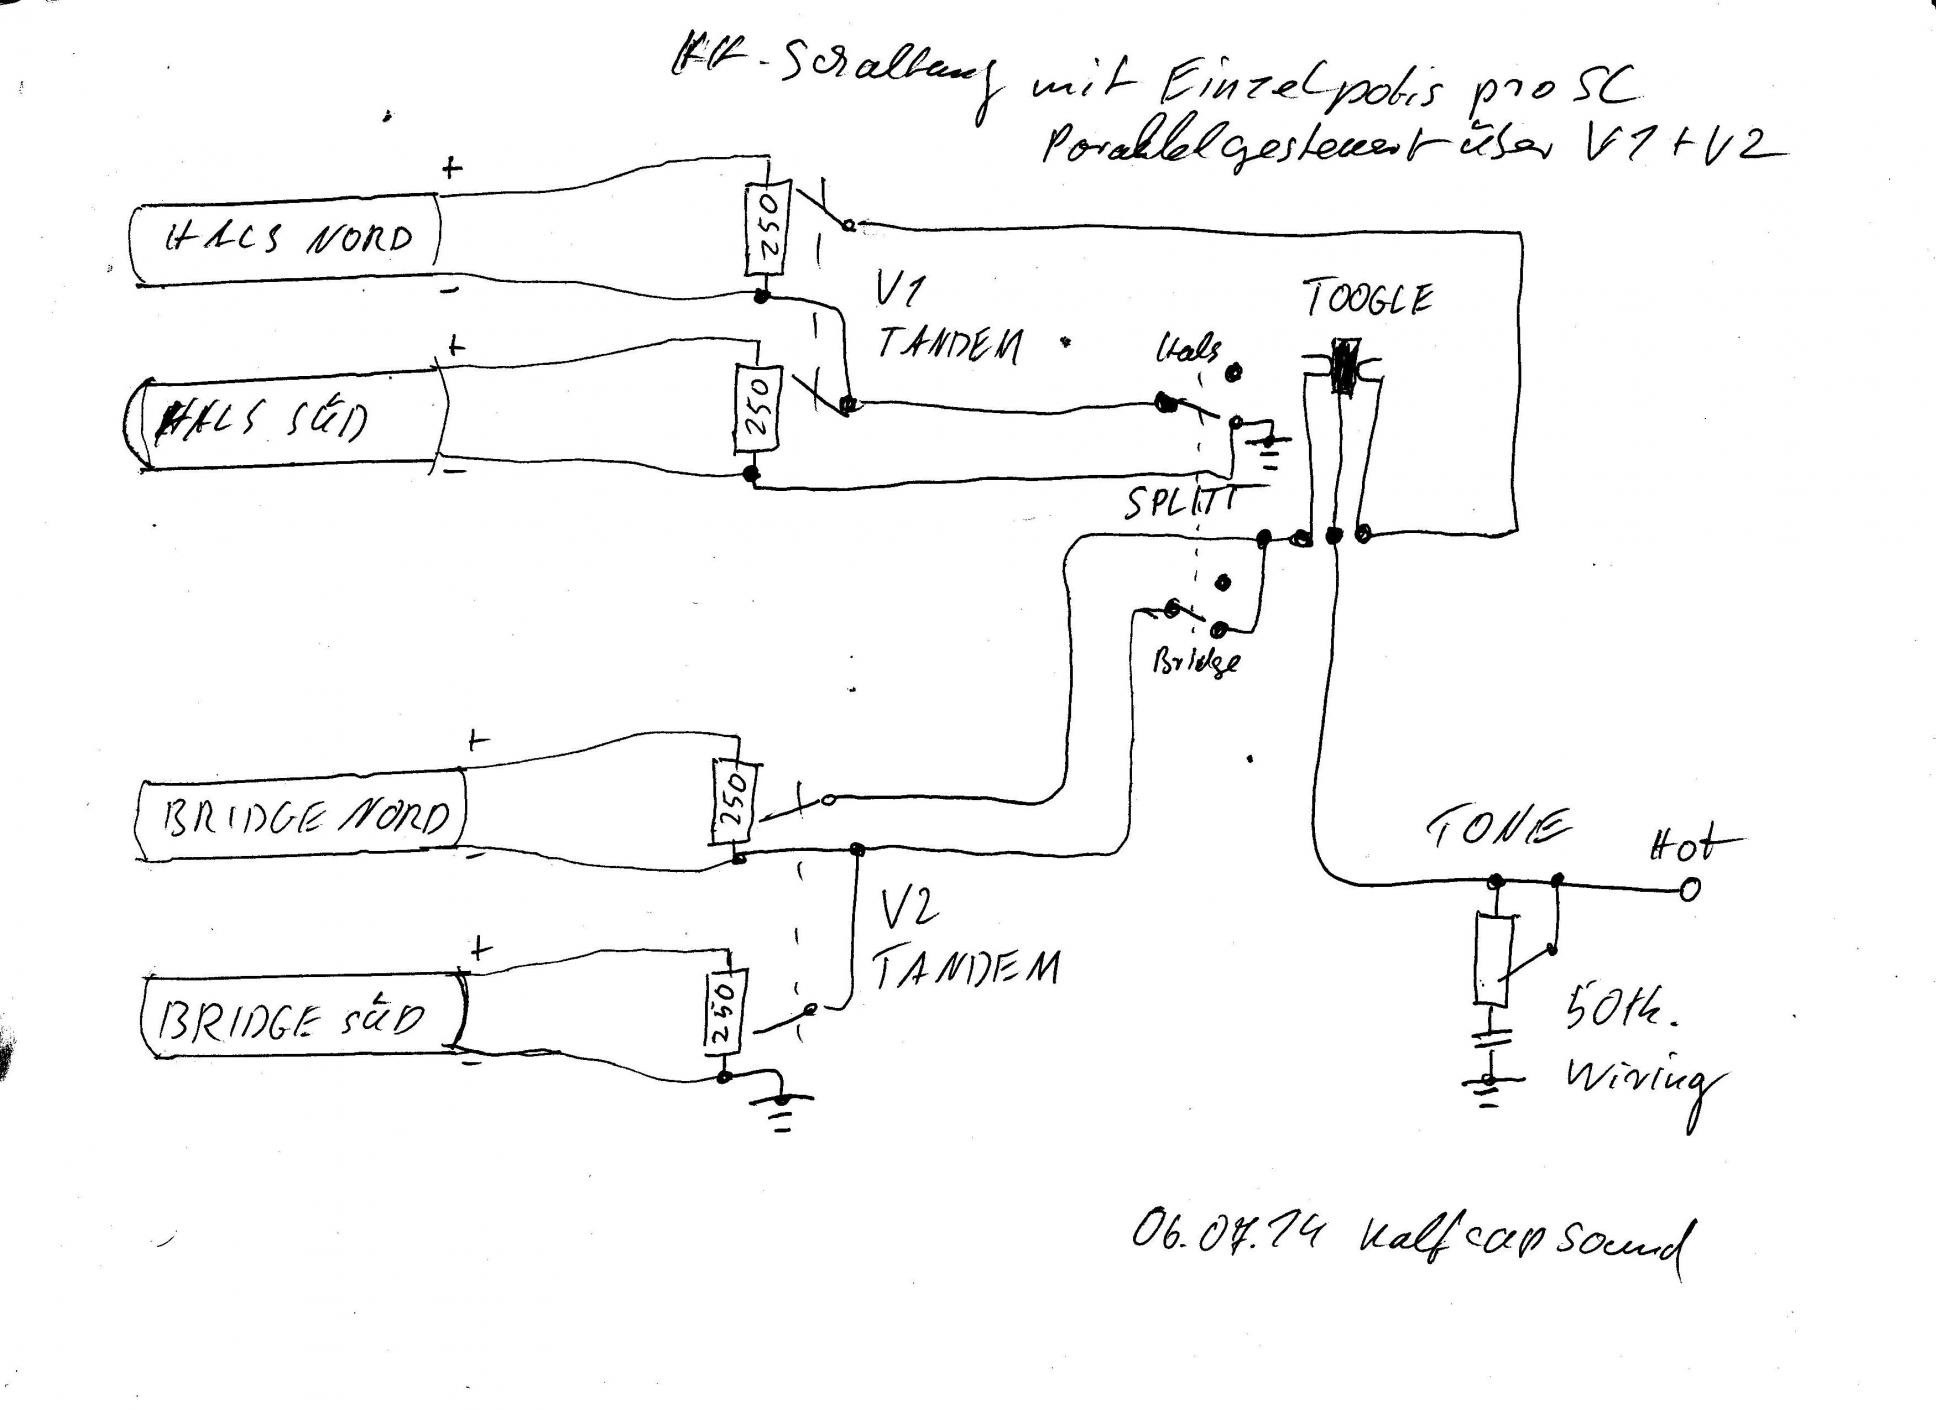 HH-Schaltung mit Einzelpotis pro SC
Parallelgesteuert über V1+V2
+
HALS NORD
-
250
V1
TANDEM
TOOGLE
+
HALS SÜD
-
250
Hals
SPLITT
Bridge
+
BRIDGE NORD
-
250
V2
TANDEM
+
BRIDGE SÜD
-
250
TONE
Hot
50th.
Wiring
06.07.14 Halfcapsound